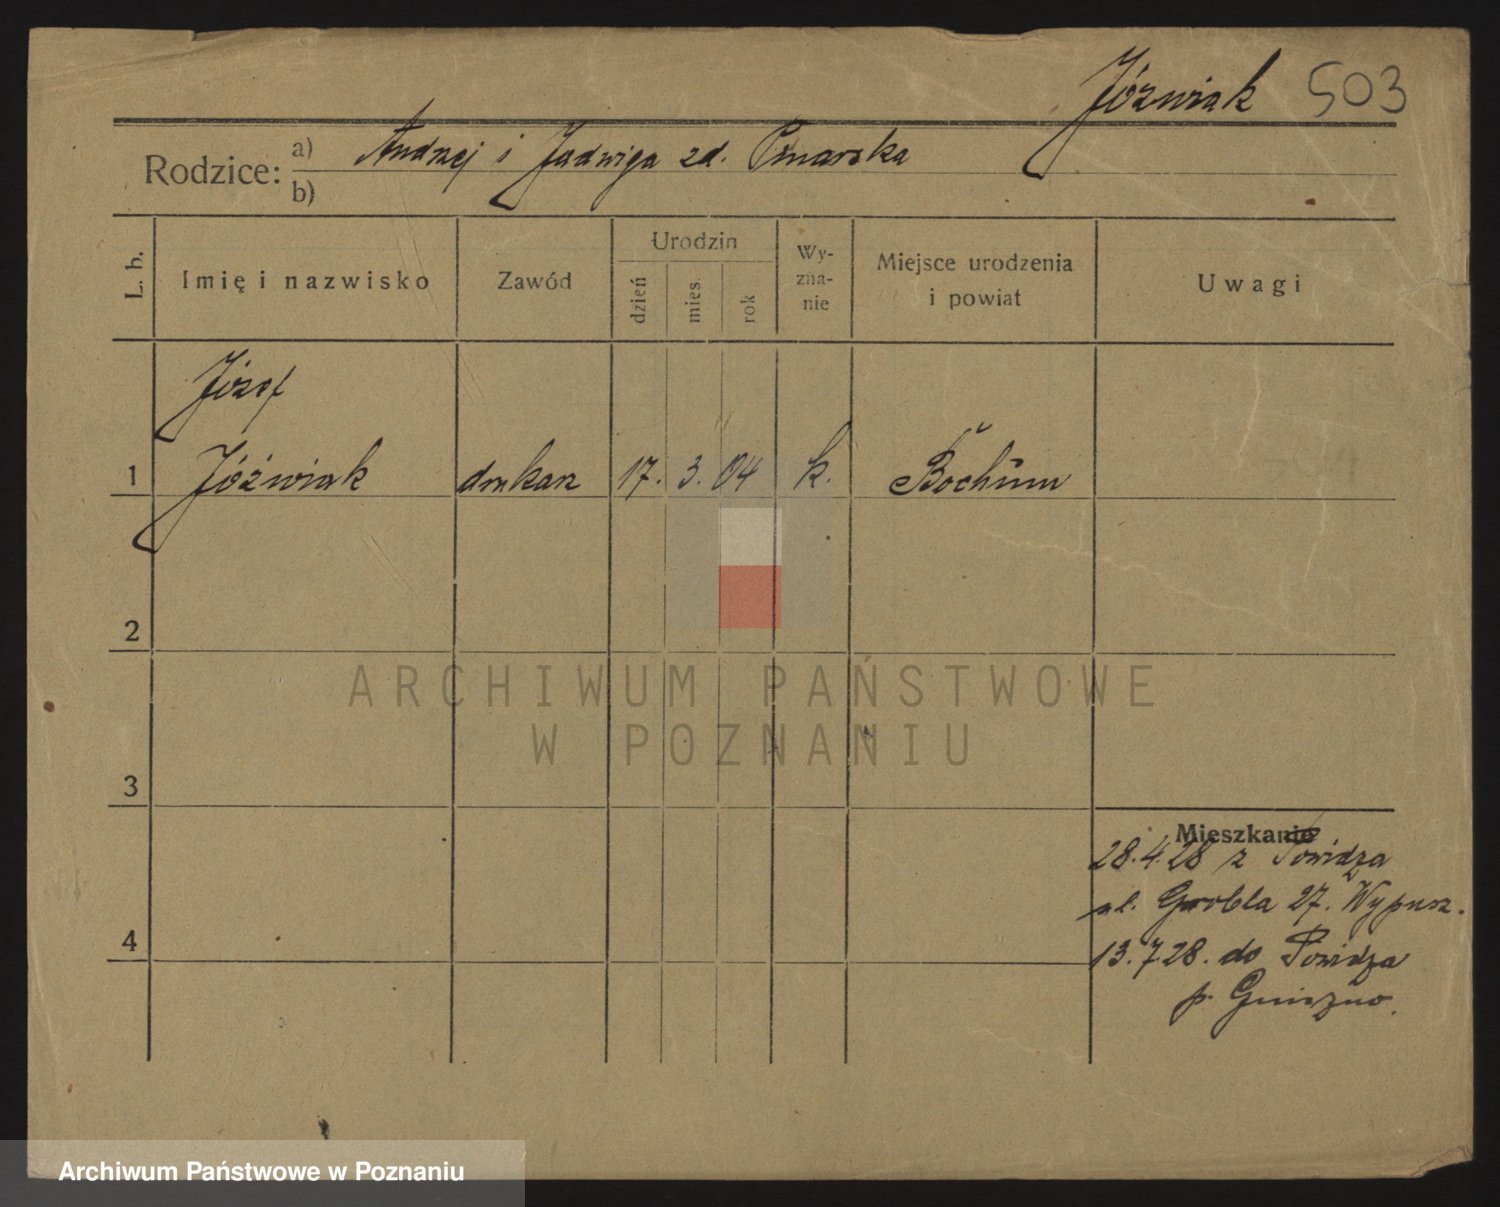 Józwiak 503
Rodzice: a) Andrzej i Jadwiga zd.
b)
L. b. Imię i nazwisko Zawód Urodzin dzień mies. rok Wy-zna-nie Miejsce urodzenia i powiat Uwagi
Józef
1 Jóźwiak drukarz 17. 3. 04 k. Bochum
2
ARCHIWUM PAŃSTWOWE
W POZNANIU
3
Mieszkanie
28.4.28 z Powidza
ul. Grobla 27. Wypusz.
4 13.7.28. do Powidza
p. Gniezno.
Archiwum Państwowe w Poznaniu